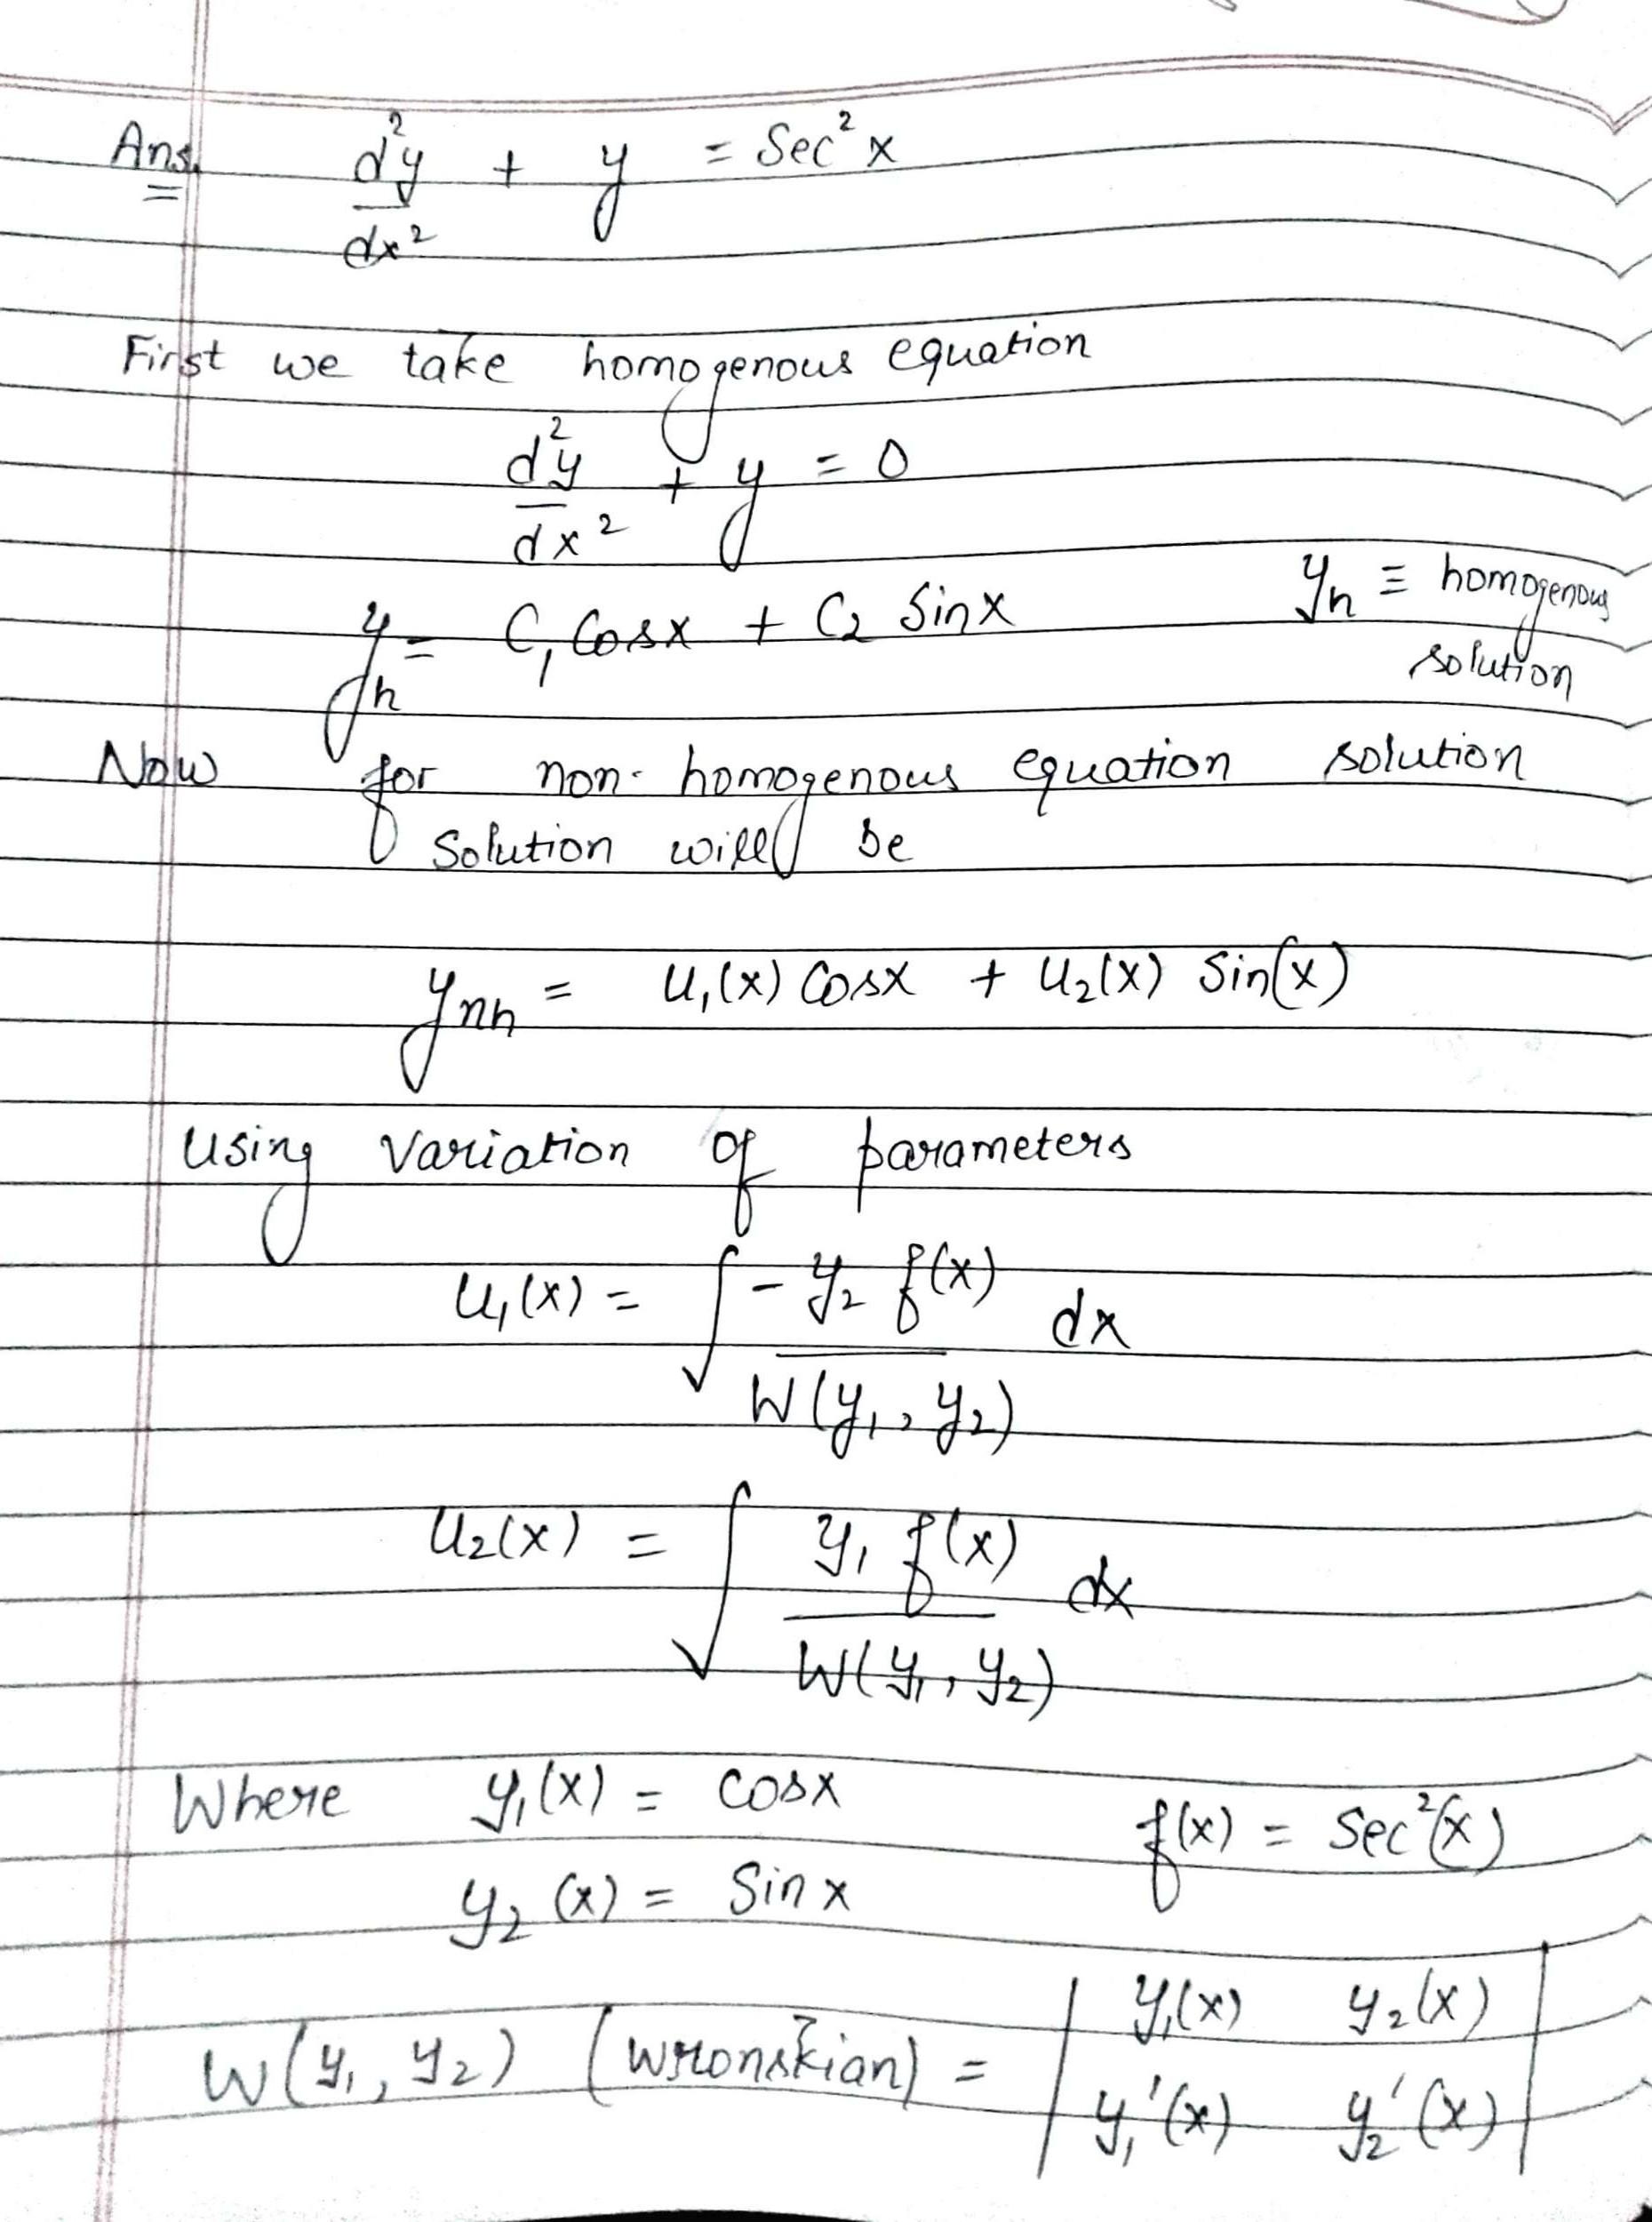 Ans. d²y/dx² + y = Sec²x
First we take homogenous equation
d²y/dx² + y = 0
y_h = C₁ Cosx + C₂ Sinx
y_h ≡ homogenous
solution
Now for non-homogenous equation solution
solution will be
y_nh = U₁(x) Cosx + U₂(x) Sin(x)
Using Variation of parameters
U₁(x) = ∫ -y₂ f(x) / W(y₁, y₂) dx
U₂(x) = ∫ y₁ f(x) / W(y₁, y₂) dx
Where y₁(x) = cosx f(x) = Sec²(x)
y₂(x) = Sinx
W(y₁, y₂) (Wronskian) = | y₁(x) y₂(x) |
| y₁'(x) y₂'(x) |